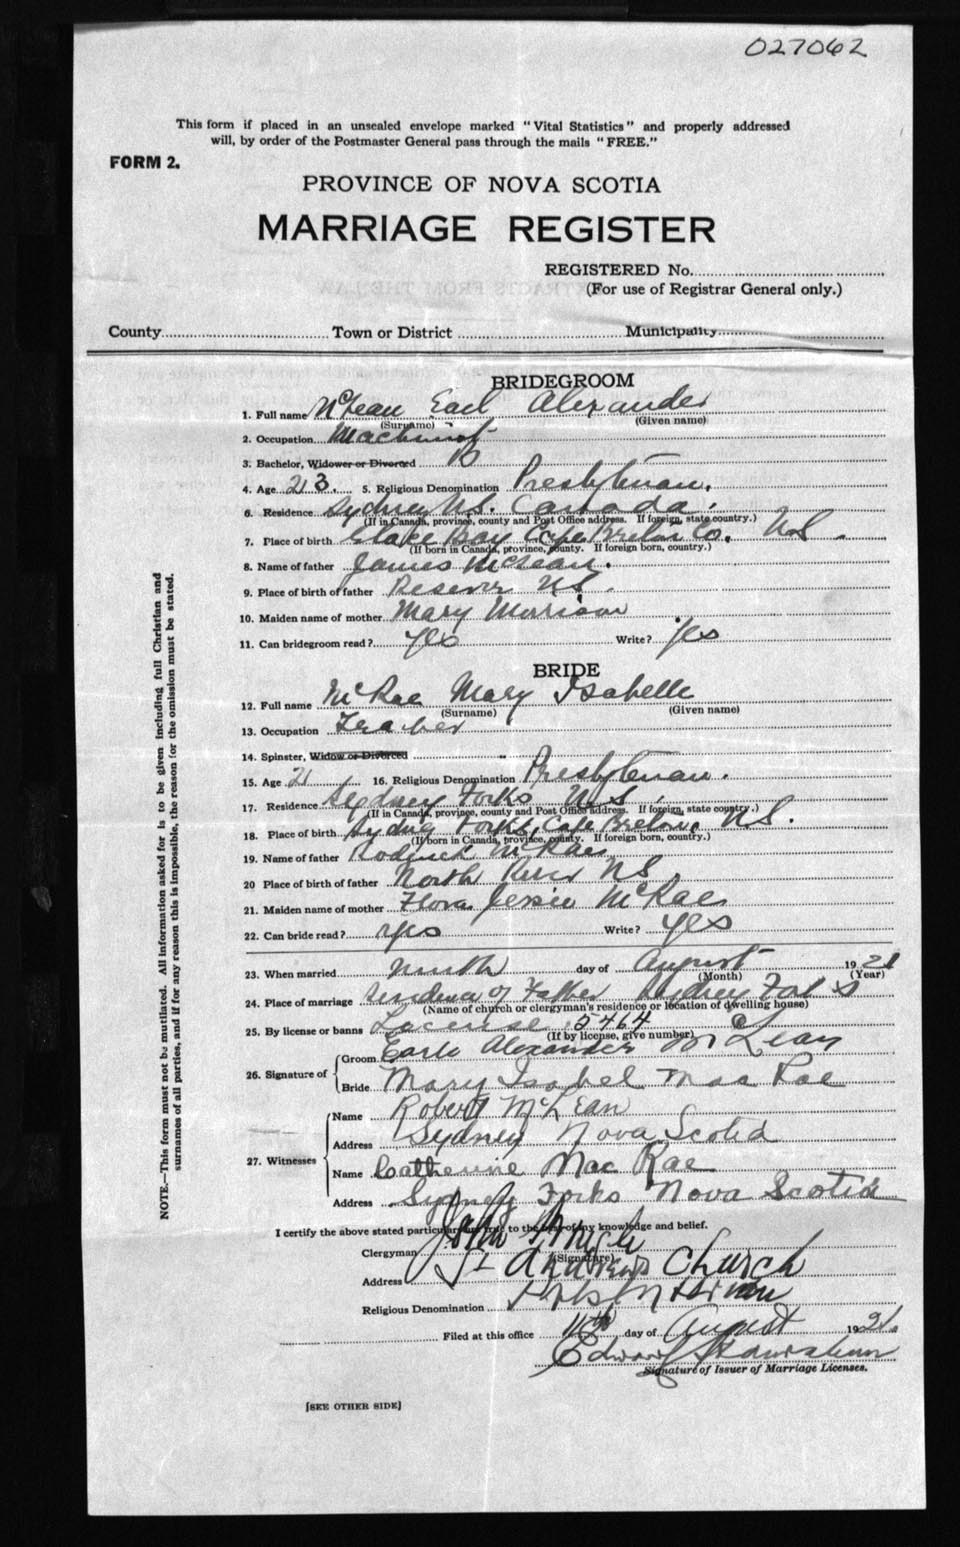 027062
This form if placed in an unsealed envelope marked "Vital Statistics" and properly addressed
will, by order of the Postmaster General pass through the mails "FREE."
FORM 2.
PROVINCE OF NOVA SCOTIA
MARRIAGE REGISTER
REGISTERED No.
(For use of Registrar General only.)
County Town or District Municipality
BRIDEGROOM
1. Full name McLean Earl Alexander
(Surname) (Given name)
2. Occupation Machinist
3. Bachelor, Widower or Divorced B
4. Age 23. 5. Religious Denomination Presbyterian.
6. Residence Sydney N.S. Canada.
(If in Canada, province, county and Post Office address. If foreign, state country.)
7. Place of birth Glace Bay Cape Breton Co. N.S.
(If born in Canada, province, county. If foreign born, country.)
8. Name of father James McLean.
9. Place of birth of father Reserve N.S.
10. Maiden name of mother Mary Morrison
11. Can bridegroom read? Yes Write? Yes
BRIDE
12. Full name McRae Mary Isabelle
(Surname) (Given name)
13. Occupation Teacher
14. Spinster, Widow or Divorced "
15. Age 21 16. Religious Denomination Presbyterian.
17. Residence Sydney Forks N.S.
(If in Canada, province, county and Post Office address. If foreign, state country.)
18. Place of birth Sydney Forks, Cape Breton, N.S.
(If born in Canada, province, county. If foreign born, country.)
19. Name of father Roderick McRae
20 Place of birth of father North River N.S.
21. Maiden name of mother Flora Jessie McRae
22. Can bride read? Yes Write? Yes
23. When married Ninth day of August 1921
(Month) (Year)
24. Place of marriage Residence of Father Sydney Forks
(Name of church or clergyman's residence or location of dwelling house)
25. By license or banns License 15464
(If by license, give number)
26. Signature of Groom Earle Alexander McLean
Bride Mary Isabel MacRae
27. Witnesses Name Robert McLean
Address Sydney Nova Scotia
Name Catherine MacRae
Address Sydney Forks Nova Scotia
I certify the above stated particulars are true to the best of my knowledge and belief.
Clergyman John
(Signature)
Address St Andrews Church
Religious Denomination Presbyterian
Filed at this office 11th day of August 1921.
Edward
Signature of Issuer of Marriage Licenses.
[SEE OTHER SIDE]
NOTE.—This form must not be mutilated. All information asked for is to be given including full Christian and
surnames of all parties, and if for any reason this is impossible, the reason for the omission must be stated.